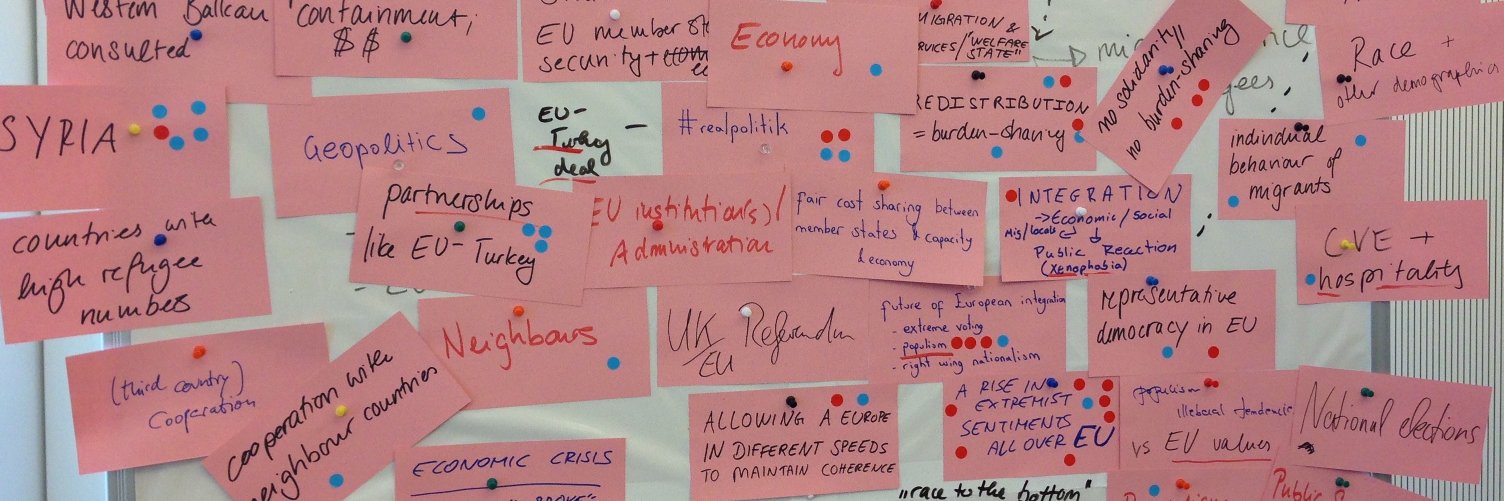 Western Balkan
consulted
containment,
$$
EU member
security +
Economy
MIGRATION &
"WELFARE
STATE"
no solidarity//
no burden-sharing
Race +
other demographics
SYRIA
Geopolitics
EU-
Turkey
deal
#realpolitik
REDISTRIBUTION
= burden-sharing
individual
behaviour of
migrants
countries with
high refugee
numbers
partnerships
like EU-Turkey
EU institution(s)/
Administration
fair cost sharing between
member states & capacity
& economy
INTEGRATION
-> Economic / Social
Mig/locals
Public Reaction
(Xenophobia)
CVE +
hospitality
(third country)
Cooperation
cooperation with
neighbour countries
Neighbours
UK Referendum
EU
future of European integration
- extreme voting
- populism
- right wing nationalism
representative
democracy in EU
ECONOMIC CRISIS
ALLOWING A EUROPE
IN DIFFERENT SPEEDS
TO MAINTAIN COHERENCE
A RISE IN
EXTREMIST
SENTIMENTS
ALL OVER EU
populism
illeberal tendencies
vs EU values
National elections
"race to the bottom"
Public